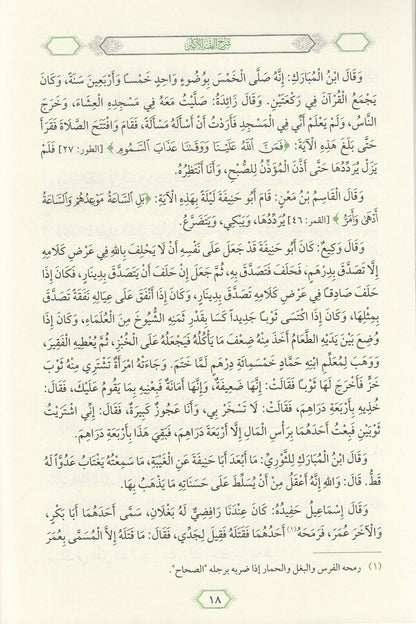 شرح الفقه الأكبر
وَقَالَ ابْنُ الْمُبَارَكِ: إِنَّهُ صَلَّى الْخَمْسَ بِوُضُوءٍ وَاحِدٍ خَمْسًا وَأَرْبَعِينَ سَنَةً، وَكَانَ
يَجْمَعُ الْقُرْآنَ فِي رَكْعَتَيْنِ. وَقَالَ زَائِدَةُ: صَلَّيْتُ مَعَهُ فِي مَسْجِدِهِ الْعِشَاءَ، وَخَرَجَ
النَّاسُ، وَلَمْ يَعْلَمْ أَنِّي فِي الْمَسْجِدِ فَأَرَدْتُ أَنْ أَسْأَلَهُ مَسْأَلَةً، فَقَامَ وَافْتَتَحَ الصَّلَاةَ فَقَرَأَ
حَتَّى بَلَغَ هَذِهِ الْآيَةَ: ﴿فَمَنَّ اللَّهُ عَلَيْنَا وَوَقَىٰنَا عَذَابَ السَّمُومِ﴾ [الطور: ٢٧] فَلَمْ
يَزَلْ يُرَدِّدُهَا حَتَّى أَذَّنَ الْمُؤَذِّنُ لِلصُّبْحِ، وَأَنَا أَنْتَظِرُهُ.
وَقَالَ الْقَاسِمُ بْنُ مَعْنٍ: قَامَ أَبُو حَنِيفَةَ لَيْلَةً بِهَذِهِ الْآيَةِ: ﴿بَلِ السَّاعَةُ مَوْعِدُهُمْ وَالسَّاعَةُ
أَدْهَىٰ وَأَمَرُّ﴾ [القمر: ٤٦] يُرَدِّدُهَا، وَيَبْكِي، وَيَتَضَرَّعُ.
وَقَالَ وَكِيعٌ: كَانَ أَبُو حَنِيفَةَ قَدْ جَعَلَ عَلَى نَفْسِهِ أَنْ لَا يَحْلِفَ بِاللَّهِ فِي عَرْضِ كَلَامِهِ
إِلَّا تَصَدَّقَ بِدِرْهَمٍ، فَحَلَفَ فَتَصَدَّقَ بِهِ، ثُمَّ جَعَلَ إِنْ حَلَفَ أَنْ يَتَصَدَّقَ بِدِينَارٍ، فَكَانَ إِذَا
حَلَفَ صَادِقًا فِي عَرْضِ كَلَامِهِ تَصَدَّقَ بِدِينَارٍ، وَكَانَ إِذَا أَنْفَقَ عَلَى عِيَالِهِ نَفَقَةً تَصَدَّقَ
بِمِثْلِهَا، وَكَانَ إِذَا اكْتَسَى ثَوْبًا جَدِيدًا كَسَا بِقَدْرِ ثَمَنِهِ الشُّيُوخَ مِنَ الْعُلَمَاءِ، وَكَانَ إِذَا
وُضِعَ بَيْنَ يَدَيْهِ الطَّعَامُ أَخَذَ مِنْهُ ضِعْفَ مَا يَأْكُلُهُ فَيَجْعَلُهُ عَلَى الْخُبْزِ، ثُمَّ يُعْطِيهِ الْفَقِيرَ،
وَوَهَبَ لِمُعَلِّمِ ابْنِهِ حَمَّادٍ خَمْسَمِائَةِ دِرْهَمٍ لَمَّا خَتَمَ. وَجَاءَتْهُ امْرَأَةٌ تَشْتَرِي مِنْهُ ثَوْبَ
خَزٍّ فَأَخْرَجَ لَهَا ثَوْبًا فَقَالَتْ: إِنَّهَا ضَعِيفَةٌ، وَإِنَّهَا أَمَانَةٌ فَبِعْنِيهِ بِمَا يَقُومُ عَلَيْكَ، فَقَالَ:
خُذِيهِ بِأَرْبَعَةِ دَرَاهِمَ، فَقَالَتْ: لَا تَسْخَرْ بِي، وَأَنَا عَجُوزٌ كَبِيرَةٌ، فَقَالَ: إِنِّي اشْتَرَيْتُ
ثَوْبَيْنِ فَبِعْتُ أَحَدَهُمَا بِرَأْسِ الْمَالِ إِلَّا أَرْبَعَةَ دَرَاهِمَ، فَبَقِيَ هَذَا بِأَرْبَعَةِ دَرَاهِمَ.
وَقَالَ ابْنُ الْمُبَارَكِ لِلثَّوْرِيِّ: مَا أَبْعَدَ أَبَا حَنِيفَةَ عَنِ الْغِيبَةِ، مَا سَمِعْتُهُ يَغْتَابُ عَدُوًّا لَهُ
قَطُّ. قَالَ: وَاللَّهِ إِنَّهُ أَعْقَلُ مِنْ أَنْ يُسَلِّطَ عَلَى حَسَنَاتِهِ مَا يَذْهَبُ بِهَا.
وَقَالَ إِسْمَاعِيلُ حَفِيدُهُ: كَانَ عِنْدَنَا رَافِضِيٌّ لَهُ بَغْلَانِ، سَمَّى أَحَدَهُمَا أَبَا بَكْرٍ،
وَالْآخَرَ عُمَرَ، فَرَمَحَهُ(١) أَحَدُهُمَا فَقَتَلَهُ فَقِيلَ لِجَدِّي، فَقَالَ: مَا قَتَلَهُ إِلَّا الْمُسَمَّى بِعُمَرَ
(١) رمحه الفرس والبغل والحمار إذا ضربه برجله "الصحاح".
١٨